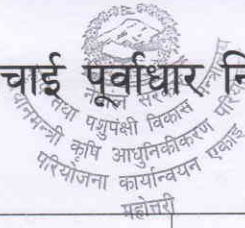 चाई पूर्वाधार
नेपाल सरकार
तथा पशुपंक्षी विकास
कृषि आधुनिकीकरण
परियोजना कार्यान्वयन एकाइ
महोत्तरी